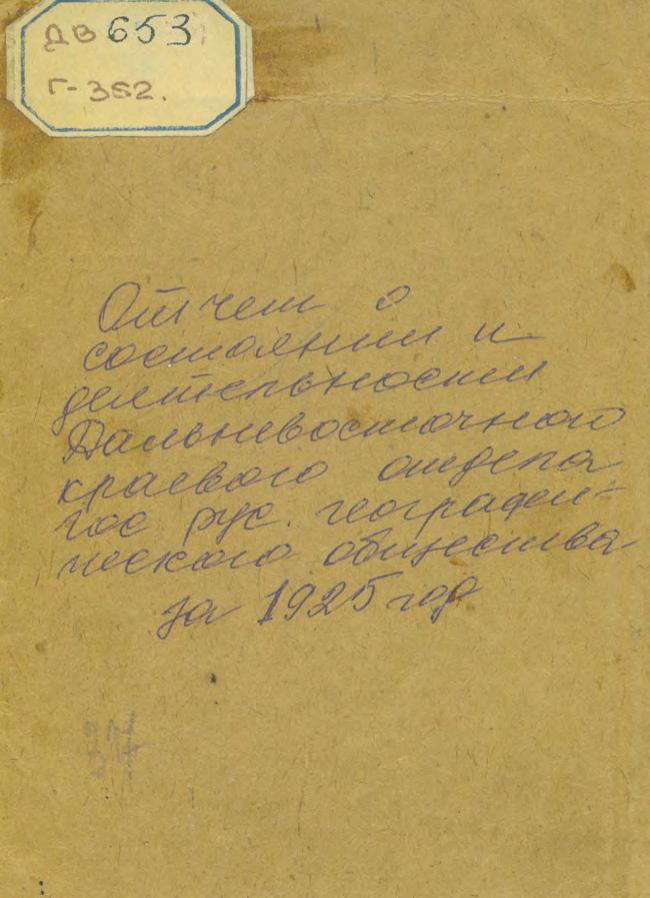 ДВ 653
Г-362.
Отчет о
состоянии и
деятельности
Дальневосточного
краевого отдела
гос рус. географи-
ческого общества
за 1925 год